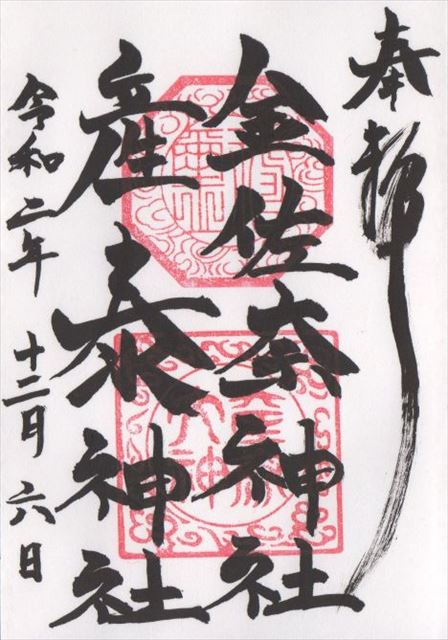 奉拝
金佐奈神社
産泰神社
令和二年 十二月 六日